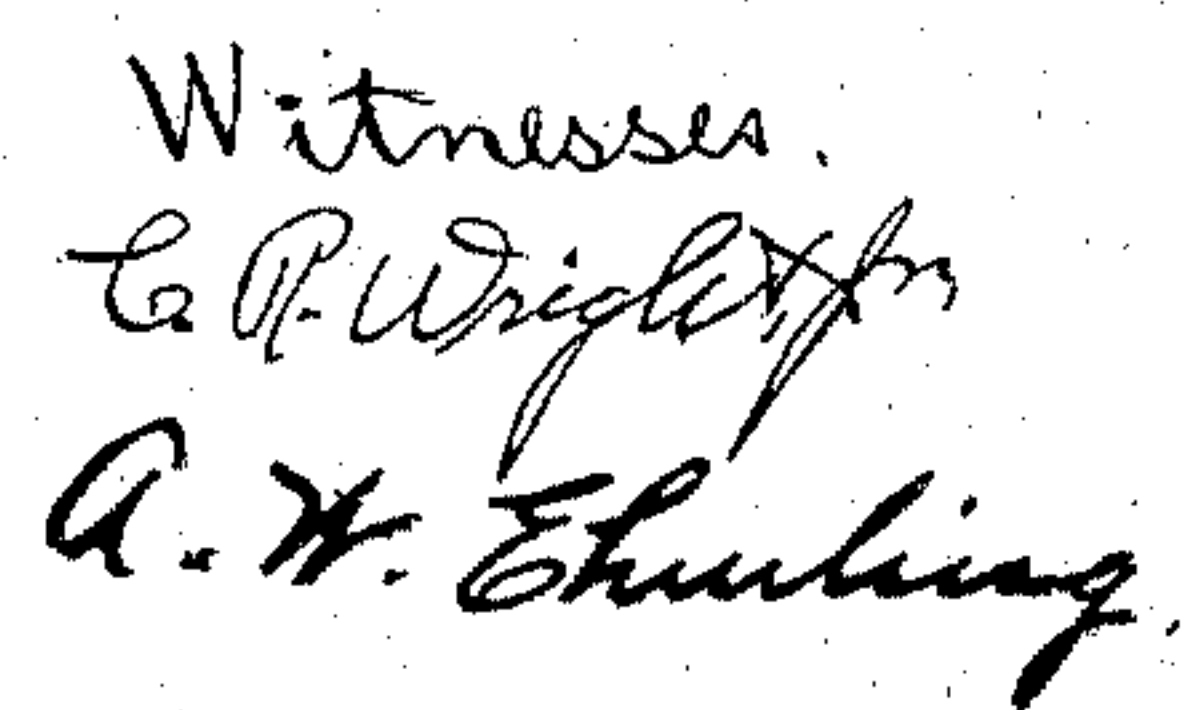 Witnesses.
C. R. Wright, Jr.
A. W. Ehurling.